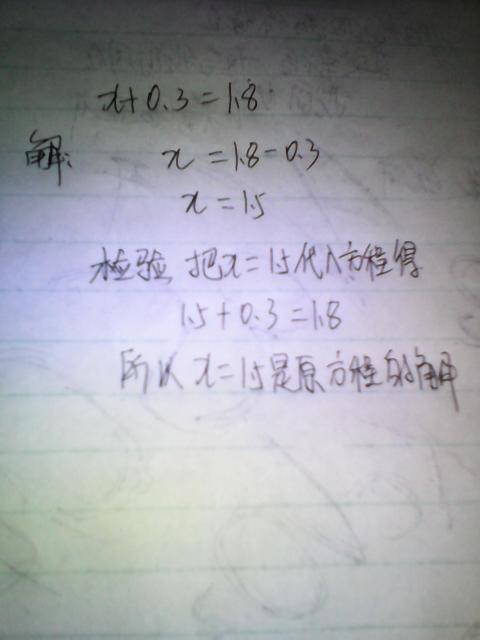 x+0.3=1.8
解: x=1.8-0.3
x=1.5
检验 把x=1.5代入方程得
1.5+0.3=1.8
所以x=1.5是原方程的解